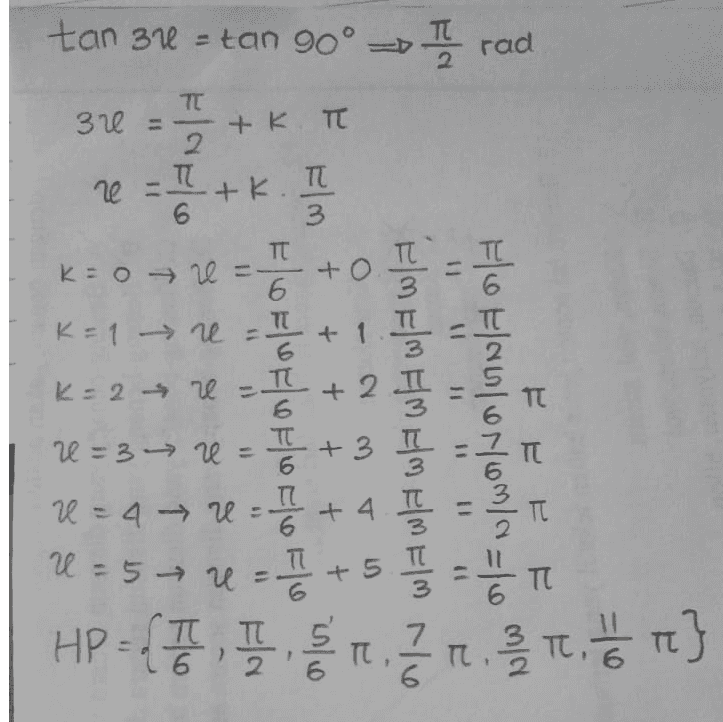 tan 3x = tan 90° ⇒ π/2 rad
3x = π/2 + k π
x = π/6 + k . π/3
k = 0 → x = π/6 + 0 . π/3 = π/6
k = 1 → x = π/6 + 1 . π/3 = π/2
k = 2 → x = π/6 + 2 π/3 = 5/6 π
x = 3 → x = π/6 + 3 π/3 = 7/6 π
x = 4 → x = π/6 + 4 π/3 = 3/2 π
x = 5 → x = π/6 + 5 π/3 = 11/6 π
HP = {π/6, π/2, 5/6 π, 7/6 π, 3/2 π, 11/6 π}